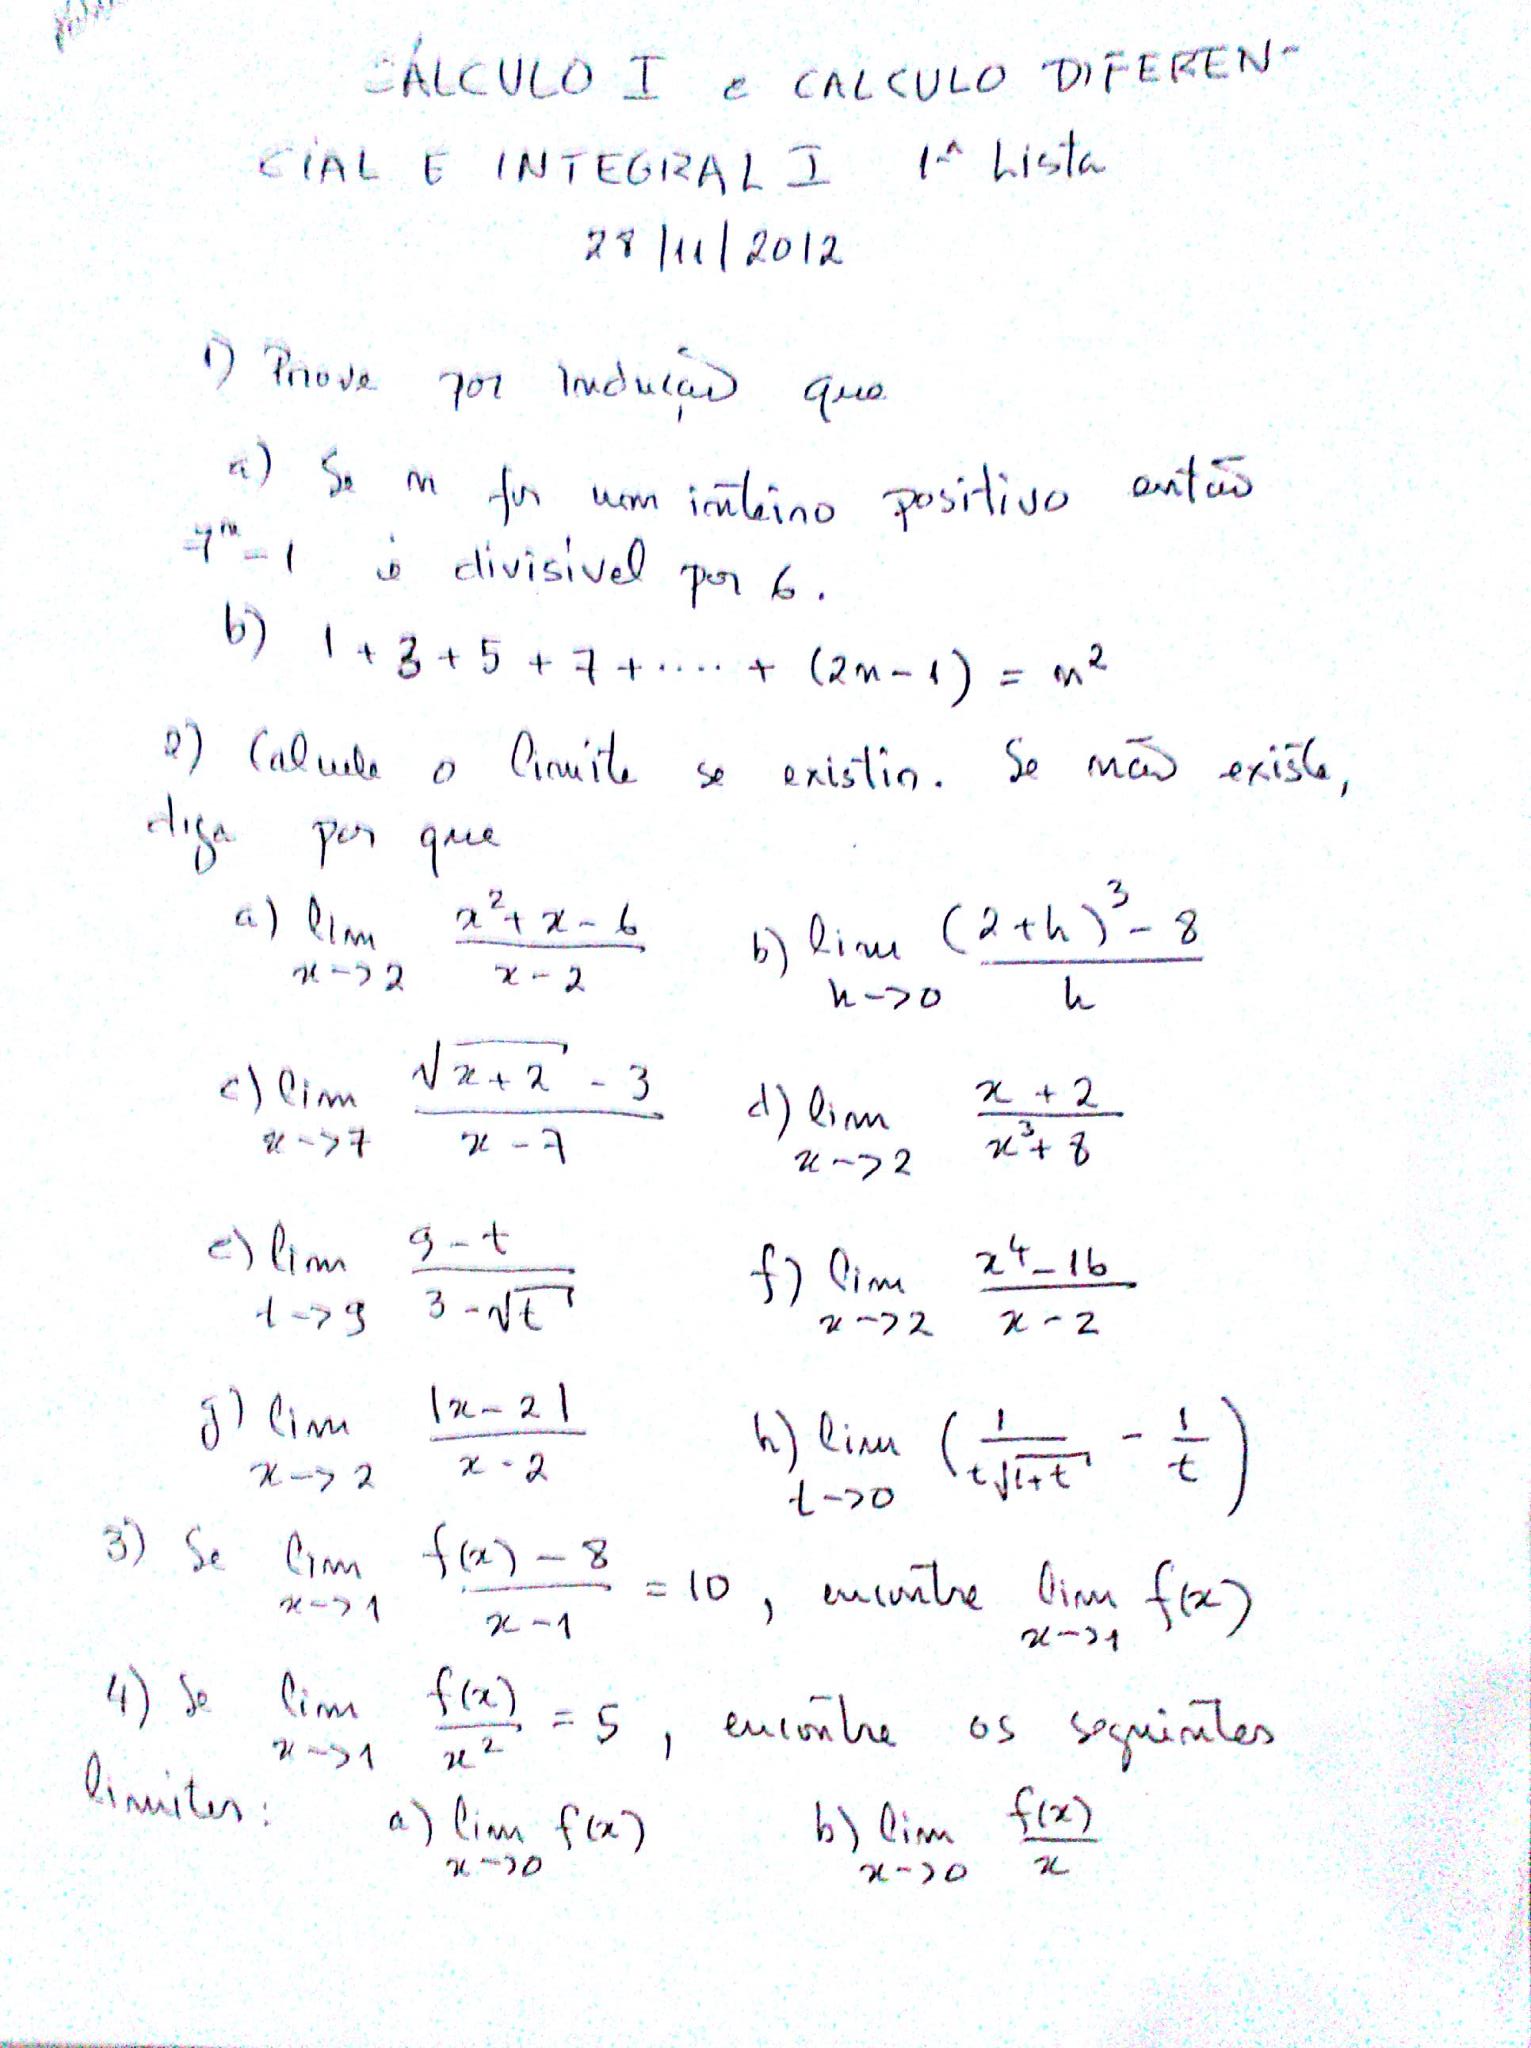 CÁLCULO I e CALCULO DIFEREN-
CIAL E INTEGRAL I 1ª Lista
28/11/2012
1) Prove por indução que
a) Se n for um inteiro positivo então
7ⁿ-1 é divisível por 6.
b) 1+3+5+7+.....+(2n-1) = n²
2) Calcule o limite se existir. Se não existe,
diga por que
a) lim x->2 (x²+x-6)/(x-2) b) lim h->0 ((2+h)³-8)/h
c) lim x->7 (√(x+2) - 3)/(x-7) d) lim x->2 (x+2)/(x³+8)
e) lim t->9 (9-t)/(3-√t) f) lim x->2 (x⁴-16)/(x-2)
g) lim x->2 |x-2|/(x-2) h) lim t->0 (1/(t√(1+t)) - 1/t)
3) Se lim x->1 (f(x)-8)/(x-1) = 10, encontre lim x->1 f(x)
4) Se lim x->1 f(x)/x² = 5, encontre os seguintes
limites: a) lim x->0 f(x) b) lim x->0 f(x)/x